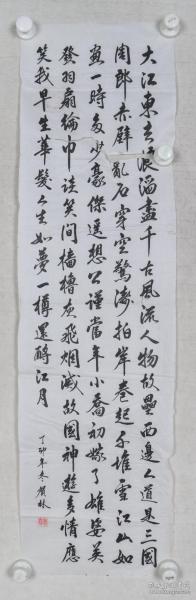 大江東去浪淘盡千古風流人物故壘西邊人道是三國
周郎赤壁亂石穿空驚濤拍岸卷起千堆雪江山如
畫一時多少豪傑遙想公瑾當年小喬初嫁了雄姿英
發羽扇綸巾談笑間檣櫓灰飛烟滅故國神遊多情應
笑我早生華髮人生如夢一樽還酹江月
丁卯年冬賀林